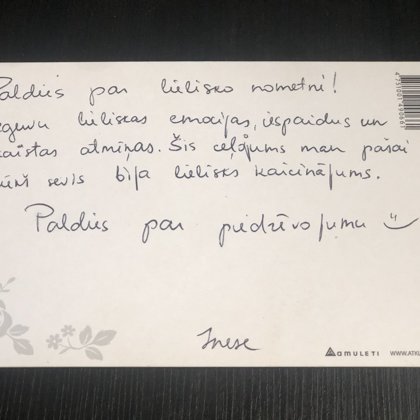 Paldies par lielisko nometni!
eguvu lieliskas emocijas, iespaidus un
aistas atmiņas. Šis ceļojums man pašai
sevis bija lielisks izaicinājums.
Paldies par piedzīvojumu
Inese
amuleti